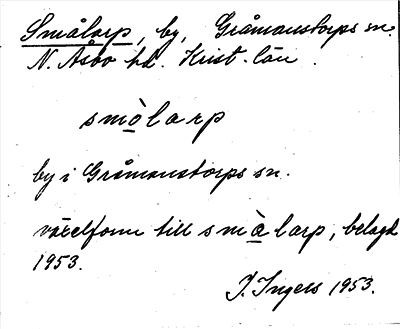 Smålarp, by, Gråmanstorps sn.
N. Åsbo hd. Krist. län.
smòlarp
by i Gråmanstorps sn.
växelform till smàlarp, belagd
1953.
I. Ingers 1953.